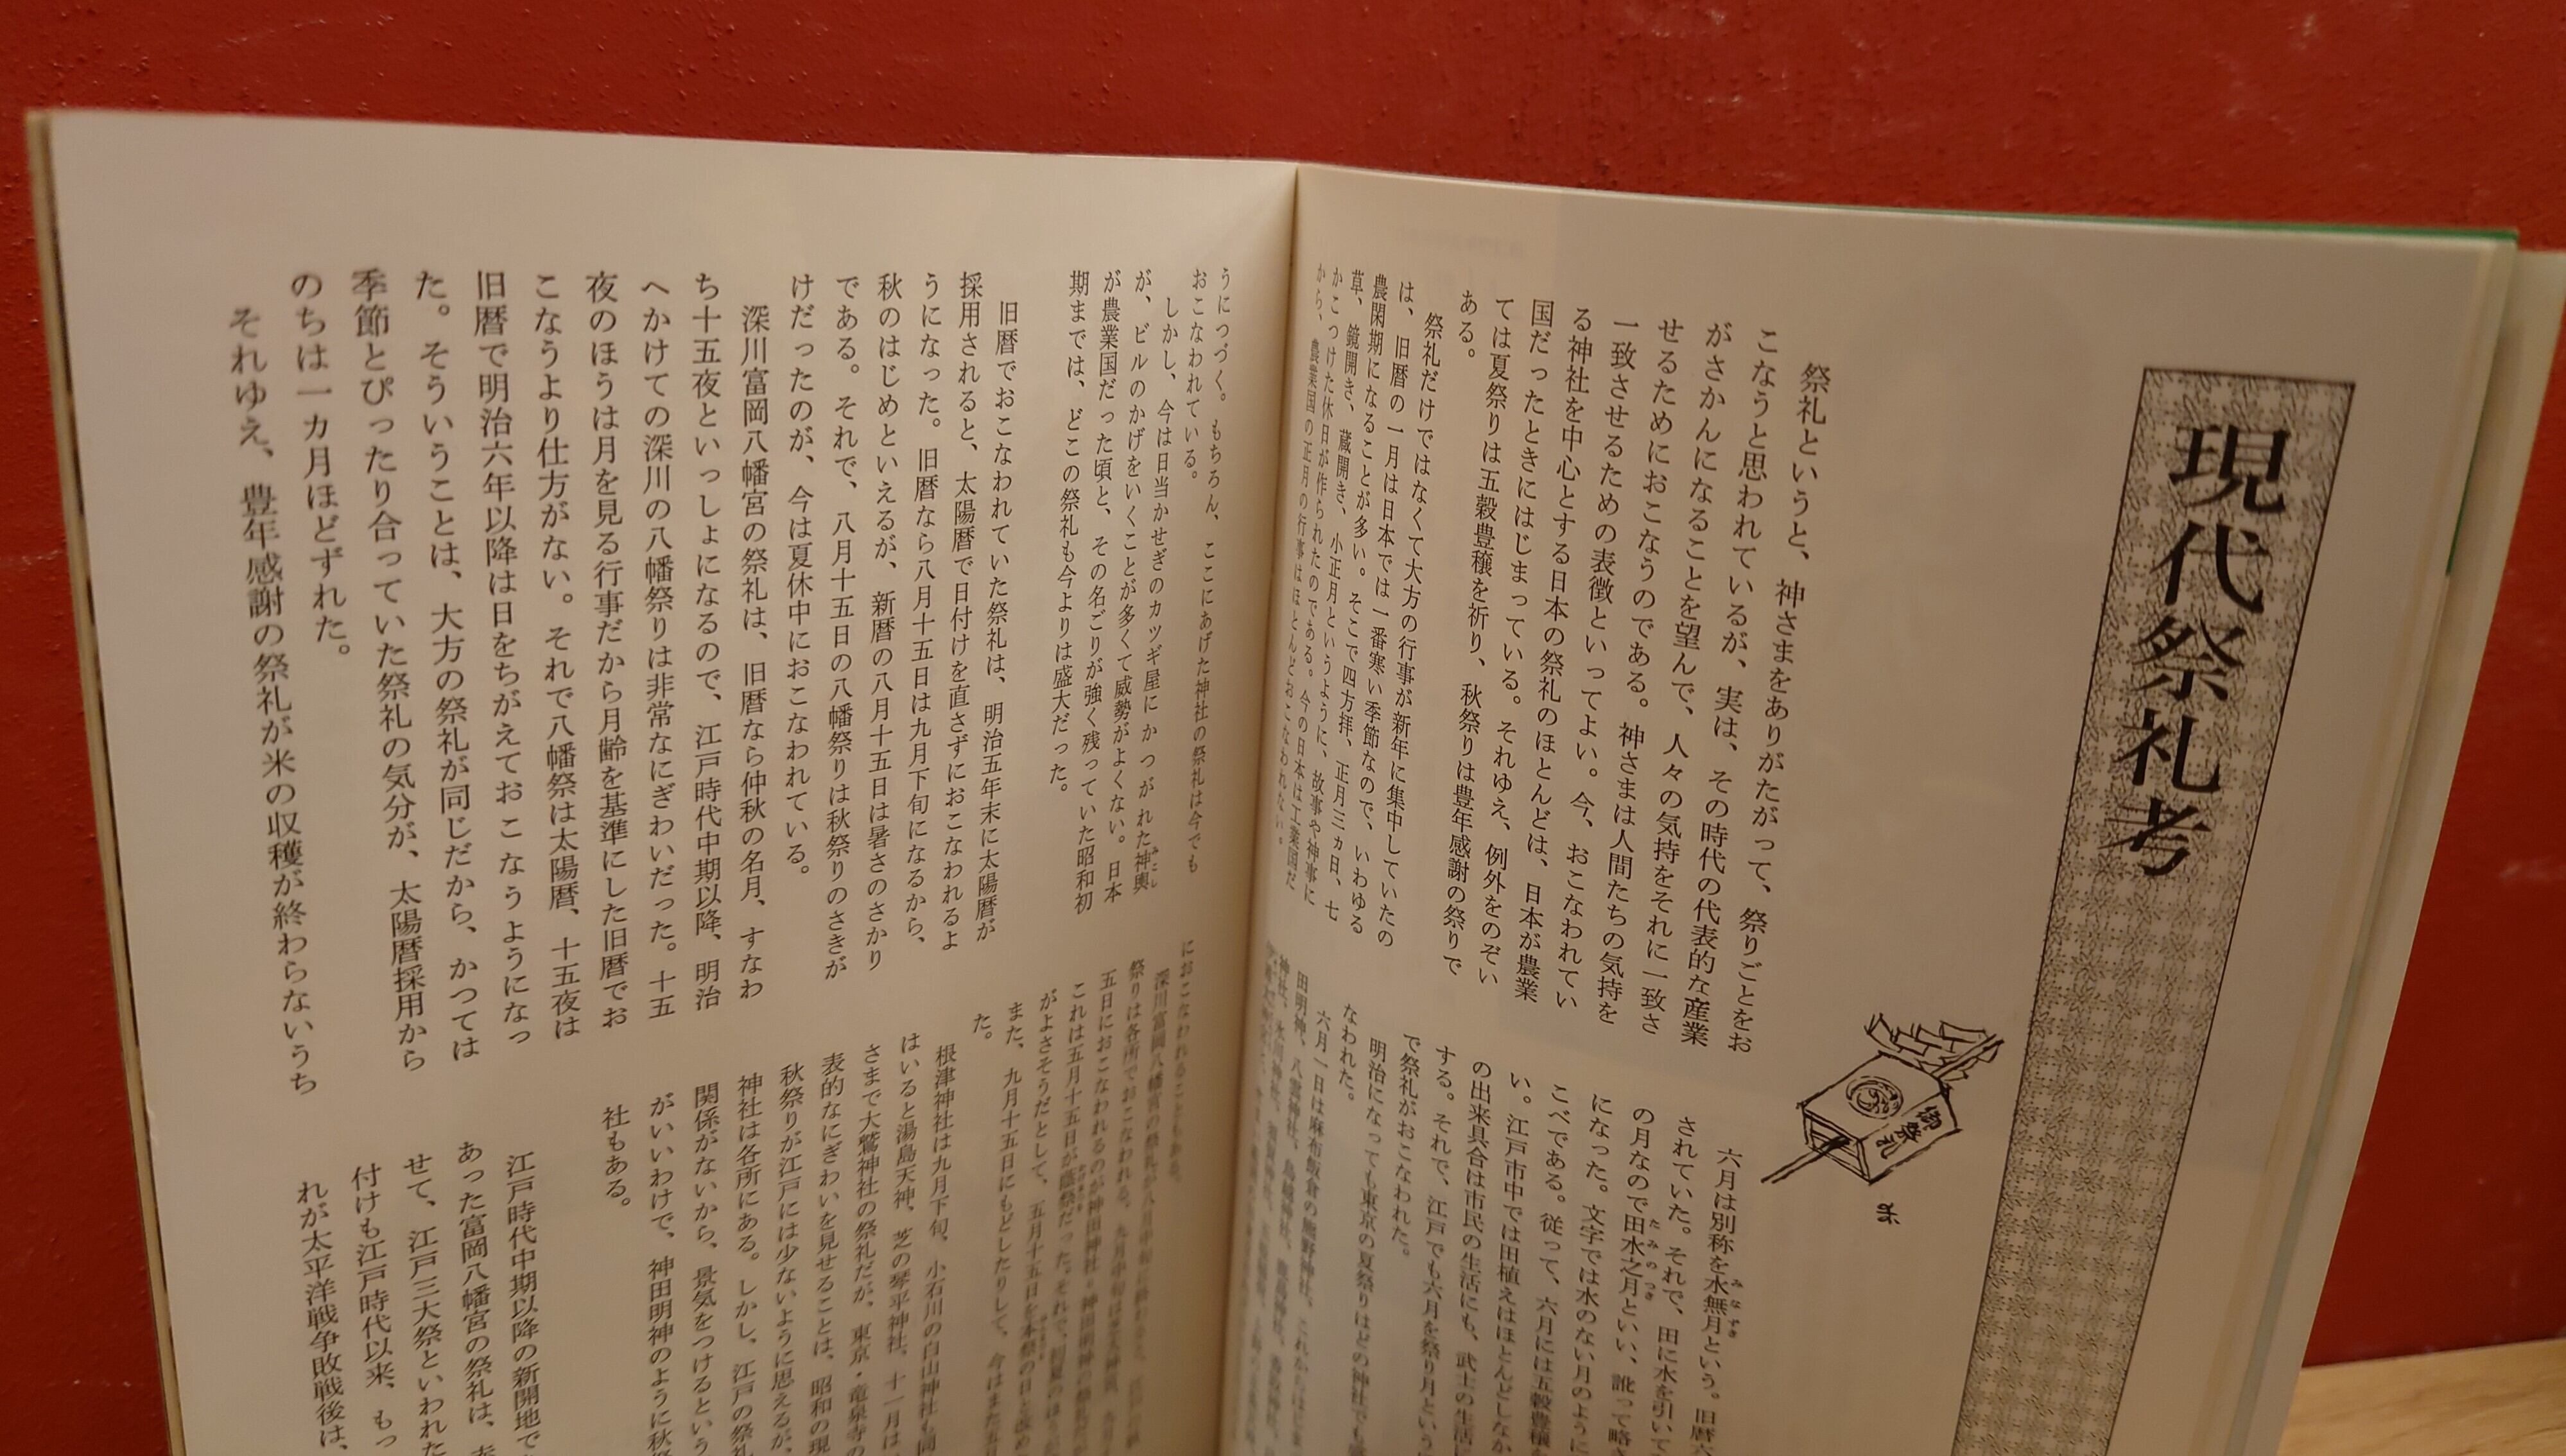 現代祭礼考
御祭礼
祭礼というと、神さまをありがたがって、祭りごとをお
こなうと思われているが、実は、その時代の代表的な産業
がさかんになることを望んで、人々の気持をそれに一致さ
せるためにおこなうのである。神さまは人間たちの気持を
一致させるための表徴といってよい。今、おこなわれてい
る神社を中心とする日本の祭礼のほとんどは、日本が農業
国だったときにはじまっている。それゆえ、例外をのぞい
ては夏祭りは五穀豊穣を祈り、秋祭りは豊年感謝の祭りで
ある。
祭礼だけではなくて大方の行事が新年に集中していたの
は、旧暦の一月は日本では一番寒い季節なので、いわゆる
農閑期になることが多い。そこで四方拝、正月三ヵ日、七
草、鏡開き、蔵開き、小正月というように、故事や神事に
かこつけた休日が作られたのである。今の日本は工業国だ
から、農業国の正月の行事はほとんどおこなわれない。
六月は別称を水無月という。旧暦六
されていた。それで、田に水を引いて
の月なので田水之月といい、訛って略さ
になった。文字では水のない月のように
こべである。従って、六月には五穀豊穣
い。江戸市中では田植えはほとんどしなか
の出来具合は市民の生活にも、武士の生活に
する。それで、江戸でも六月を祭り月という
で祭礼がおこなわれた。
明治になっても東京の夏祭りはどの神社でも盛
なわれた。
六月一日は麻布飯倉の熊野神社、これからはじま
田明神、八雲神社、鳥越神社、
うにつづく。もちろん、ここにあげた神社の祭礼は今でも
おこなわれている。
しかし、今は日当かせぎのカツギ屋にかつがれた神輿
が、ビルのかげをいくことが多くて威勢がよくない。日本
が農業国だった頃と、その名ごりが強く残っていた昭和初
期までは、どこの祭礼も今よりは盛大だった。
旧暦でおこなわれていた祭礼は、明治五年末に太陽暦が
採用されると、太陽暦で日付けを直さずにおこなわれるよ
うになった。旧暦なら八月十五日は九月下旬になるから、
秋のはじめといえるが、新暦の八月十五日は暑さのさかり
である。それで、八月十五日の八幡祭りは秋祭りのさきが
けだったのが、今は夏休中におこなわれている。
深川富岡八幡宮の祭礼は、旧暦なら仲秋の名月、すなわ
ち十五夜といっしょになるので、江戸時代中期以降、明治
へかけての深川の八幡祭りは非常なにぎわいだった。十五
夜のほうは月を見る行事だから月齢を基準にした旧暦でお
こなうより仕方がない。それで八幡祭は太陽暦、十五夜は
旧暦で明治六年以降は日をちがえておこなうようになっ
た。そういうことは、大方の祭礼が同じだから、かつては
季節とぴったり合っていた祭礼の気分が、太陽暦採用から
のちは一カ月ほどずれた。
それゆえ、豊年感謝の祭礼が米の収穫が終わらないうち
におこなわれることもある。
深川富岡八幡宮の祭礼が八月中旬に
祭りは各所でおこなわれる。九月中旬は
五日におこなわれるのが神田神社＝神田明神の祭礼
これは五月十五日が陰祭だった。それで、初夏のほう
がよさそうだとして、五月十五日を本祭の日と改め
また、九月十五日にもどしたりして、今はまた五月
た。
根津神社は九月下旬、小石川の白山神社も同
はいると湯島天神、芝の琴平神社、十一月は
さまで大鷲神社の祭礼だが、東京・竜泉寺の
表的なにぎわいを見せることは、昭和の現
秋祭りが江戸には少ないように思えるが、
神社は各所にある。しかし、江戸の祭礼
関係がないから、景気をつけるという
がいいわけで、神田明神のように秋祭
社もある。
江戸時代中期以降の新開地で
あった富岡八幡宮の祭礼は、
せて、江戸三大祭といわれた
付けも江戸時代以来、もっ
れが太平洋戦争敗戦後は、